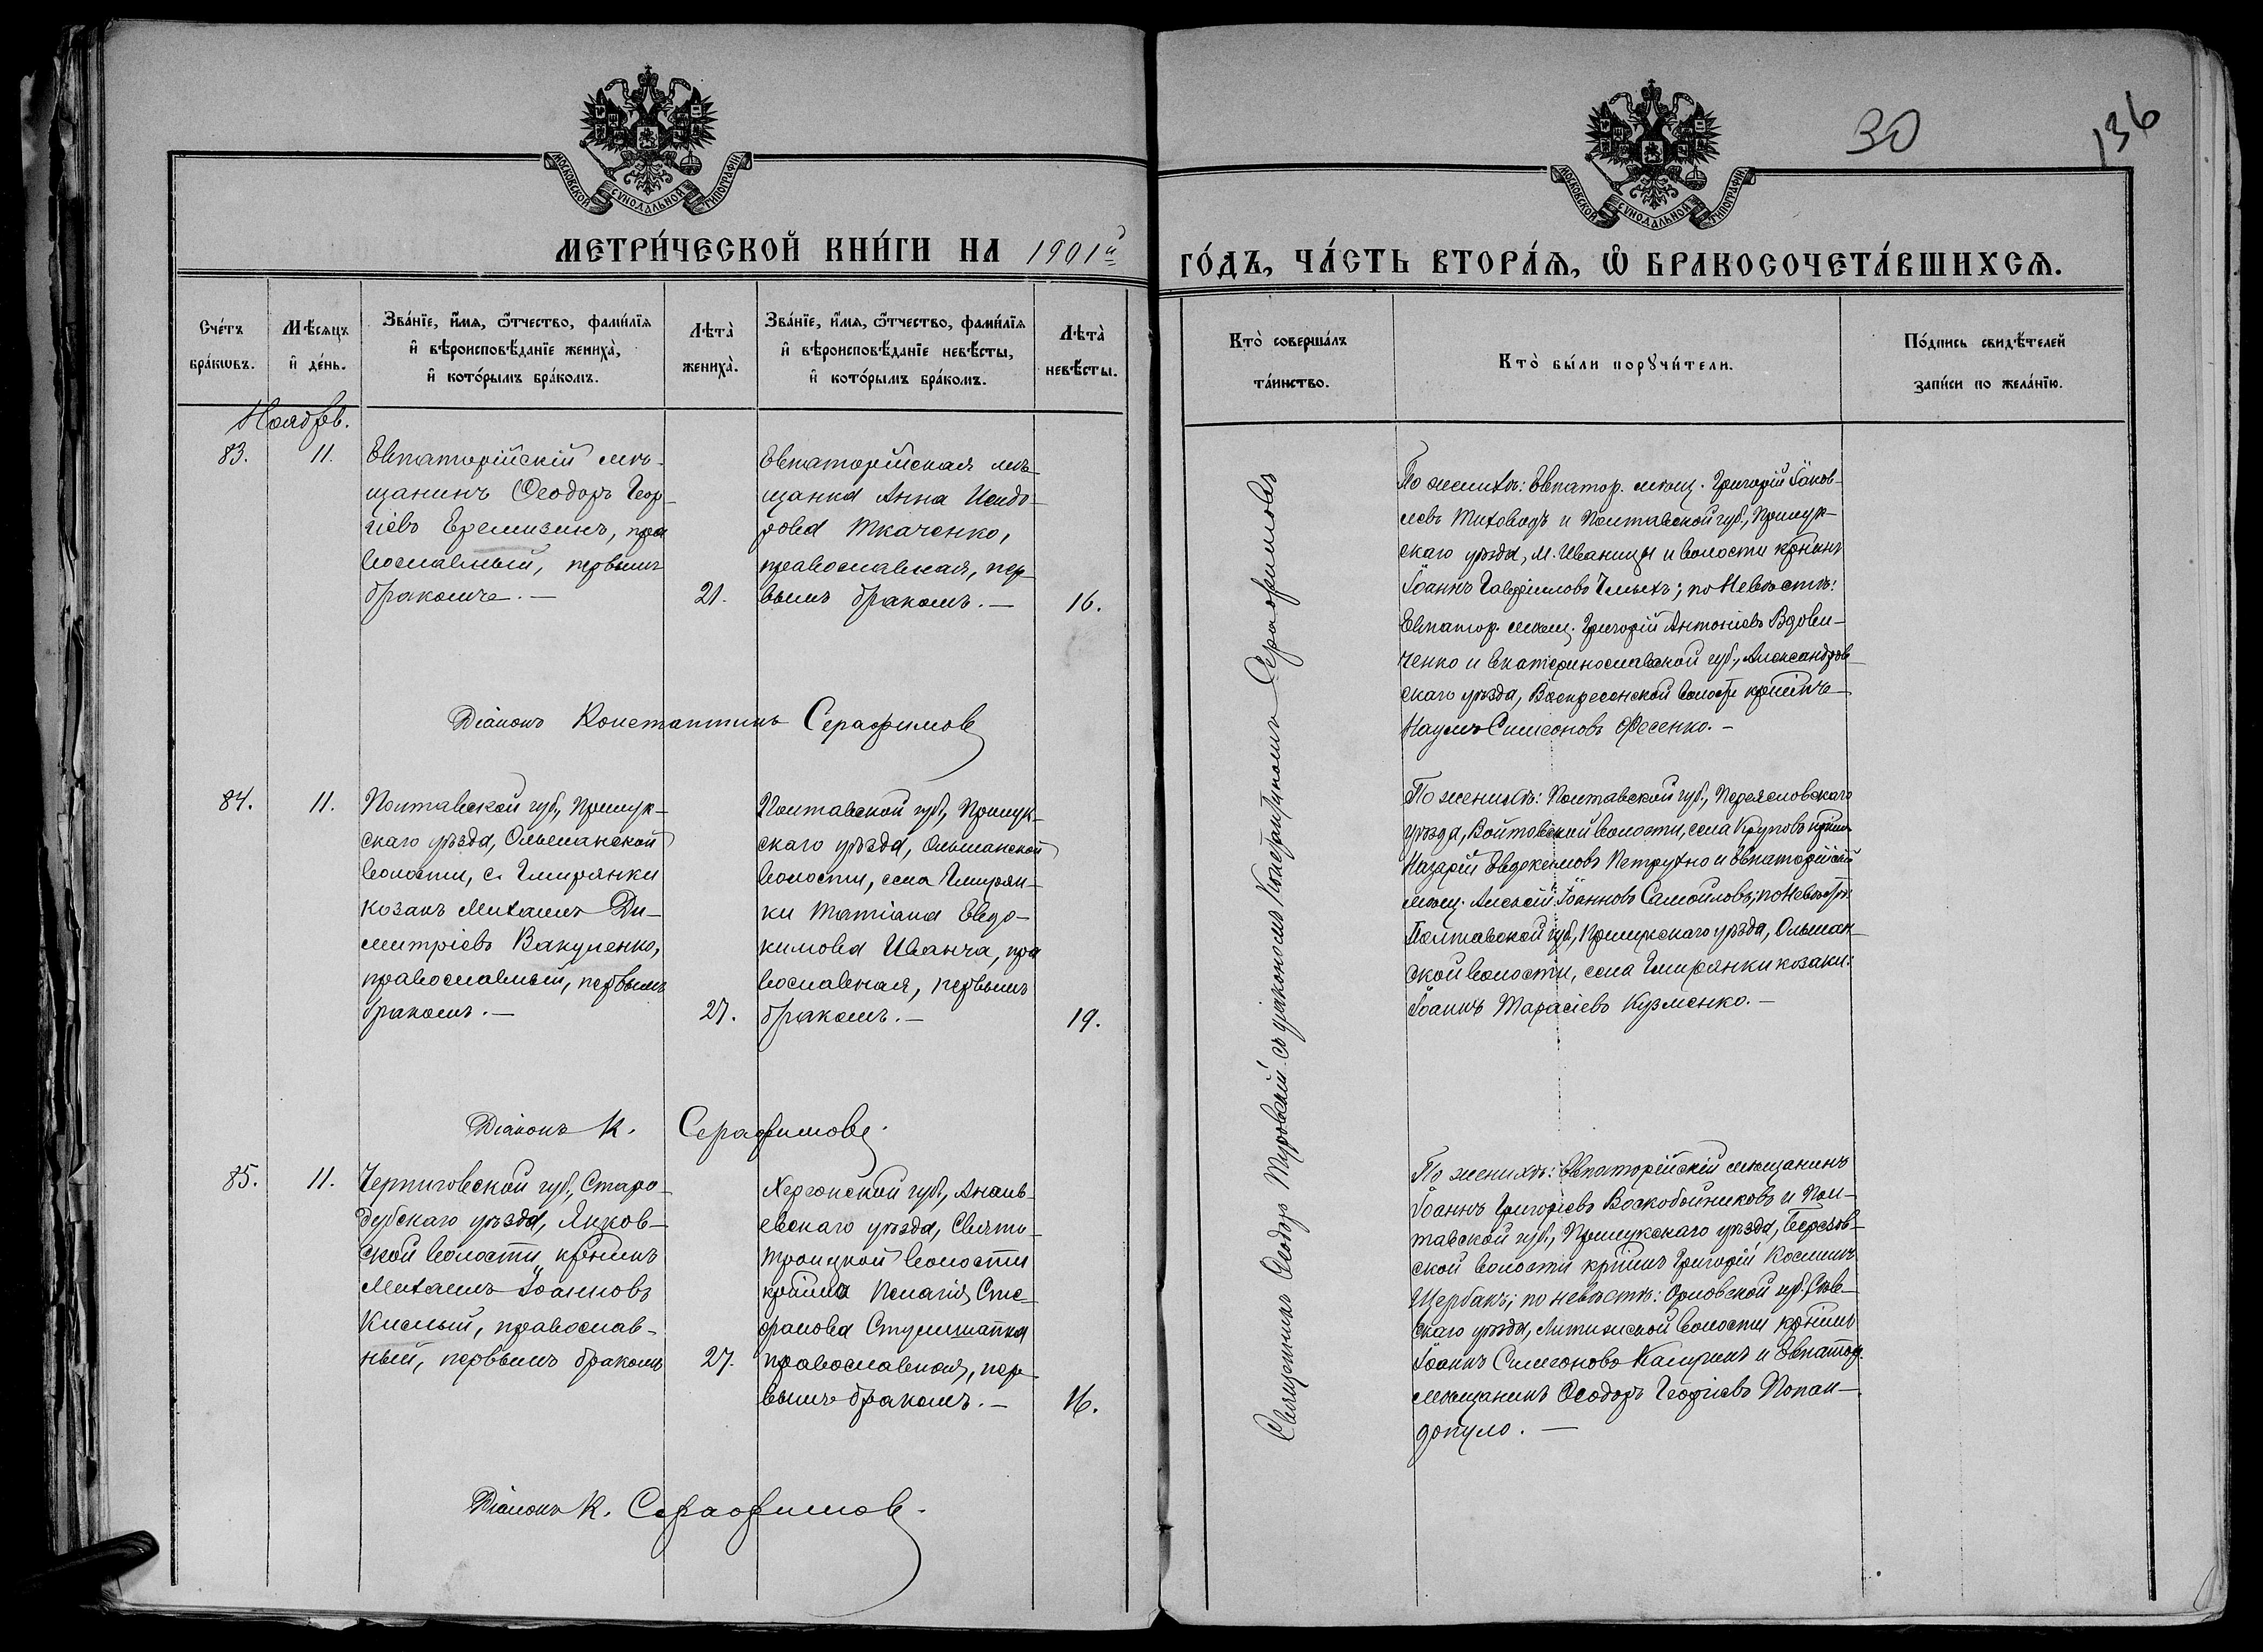 30
136
МОСКОВСКОЙ СѴНОДАЛЬНОЙ ТИПОГРАФІИ
МОСКОВСКОЙ СѴНОДАЛЬНОЙ ТИПОГРАФІИ
МЕТРИ́ЧЕСКОЙ КНИ́ГИ НА 1901й
ГО́ДЪ, ЧА́СТЬ ВТОРА́Ѧ, Ѡ҆ БРАКОСОЧЕТА́ВШИХСѦ.
Сче́тъ
бра́кѡвъ.
Мѣ́сѧцъ
и҆ де́нь.
Зва́нїе, и҆́мѧ, ѻ҆́тчество, фами́лїѧ
и҆ вѣроисповѣ́данїе жениха̀,
и҆ кото́рымъ бра́комъ.
Лѣта̀
жениха̀.
Зва́нїе, и҆́мѧ, ѻ҆́тчество, фами́лїѧ
и҆ вѣроисповѣ́данїе невѣ́сты,
и҆ кото́рымъ бра́комъ.
Лѣта̀
невѣ́сты.
Кто̀ соверша́лъ
та́инство.
Кто̀ бы́ли порꙋчи́тели.
По́дпись свидѣ́телей
запи́си по жела́нїю.
Ноябрь.
83.
11.
Евпаторійскій мѣ-
щанинъ Ѳеодоръ Геор-
гіевъ Еремизинъ, пра
вославный, первымъ
бракомъ. —
21.
Евпаторійская мѣ
щанка Анна Исидо-
рова Ткаченко,
православная, пер-
вымъ бракомъ. —
16.
По женихѣ: Евпатор. мѣщ. Григорій Іаков-
левъ Тиховодъ и Полтавской губ., Прилук-
скаго уѣзда, М. Иваницы и волости кр-нинъ
Іоаннъ Гавріиловъ Гмыхъ; по Невѣстѣ:
Евпатор. мѣщ. Григорій Антоніевъ Вдови-
ченко и Екатеринославской губ., Александров-
скаго уѣзда, Воскресенской волости кр-нинъ
Наумъ Симеоновъ Фесенко. —
Діаконъ Константинъ Серафимовъ
84.
11.
Полтавской губ., Прилук-
скаго уѣзда, Ольшанской
волости, с. Гмирянки
козакъ Михаилъ Ди-
митріевъ Вакуленко,
православный, первымъ
бракомъ. —
27.
Полтавской губ., Прилук-
скаго уѣзда, Ольшанской
волости, села Гмирян-
ки Татіана Евдо-
кимова Иванча, пра
вославная, первымъ
бракомъ. —
19.
По женихѣ: Полтавской губ., Переяславскаго
уѣзда, Войтовской волости, села Круповъ кр-нинъ
Назарій Евдокимовъ Петрухно и Евпаторійскій
мѣщ. Алексій Іоанновъ Самойловъ; по Невѣстѣ
Полтавской губ., Прилукскаго уѣзда, Ольшан-
ской волости, села Гмирянки козаки:
Іоаннъ Тарасіевъ Кузменко. —
Діаконъ К. Серафимовъ.
85.
11.
Черниговской губ., Старо-
дубскаго уѣзда, Янков-
ской волости кр-нинъ
Михаилъ Іоанновъ
Кислый, православ-
ный, первымъ бракомъ
27.
Херсонской губ., Анань-
евскаго уѣзда, Свято-
троицкой волости
кр-нка Пелагія Сте-
фанова Стулишапка
православная, пер-
вымъ бракомъ. —
16.
По женихѣ: Евпаторійскій мѣщанинъ
Іоаннъ Григоріевъ Воскобойниковъ и Пол-
тавской губ., Прилукскаго уѣзда, Березов-
ской волости кр-нинъ Григорій Косминъ
Щербакъ; по невѣстѣ: Орловской губ. Сѣв-
скаго уѣзда, Литижской волости кр-нинъ
Іоаннъ Симеоновъ Калужинъ и Евпатор.
мѣщанинъ Ѳеодоръ Георгіевъ Попан-
допуло. —
Діаконъ К. Серафимовъ.
Священникъ Ѳеодоръ Туровскій съ діакономъ Константиномъ Серафимовымъ